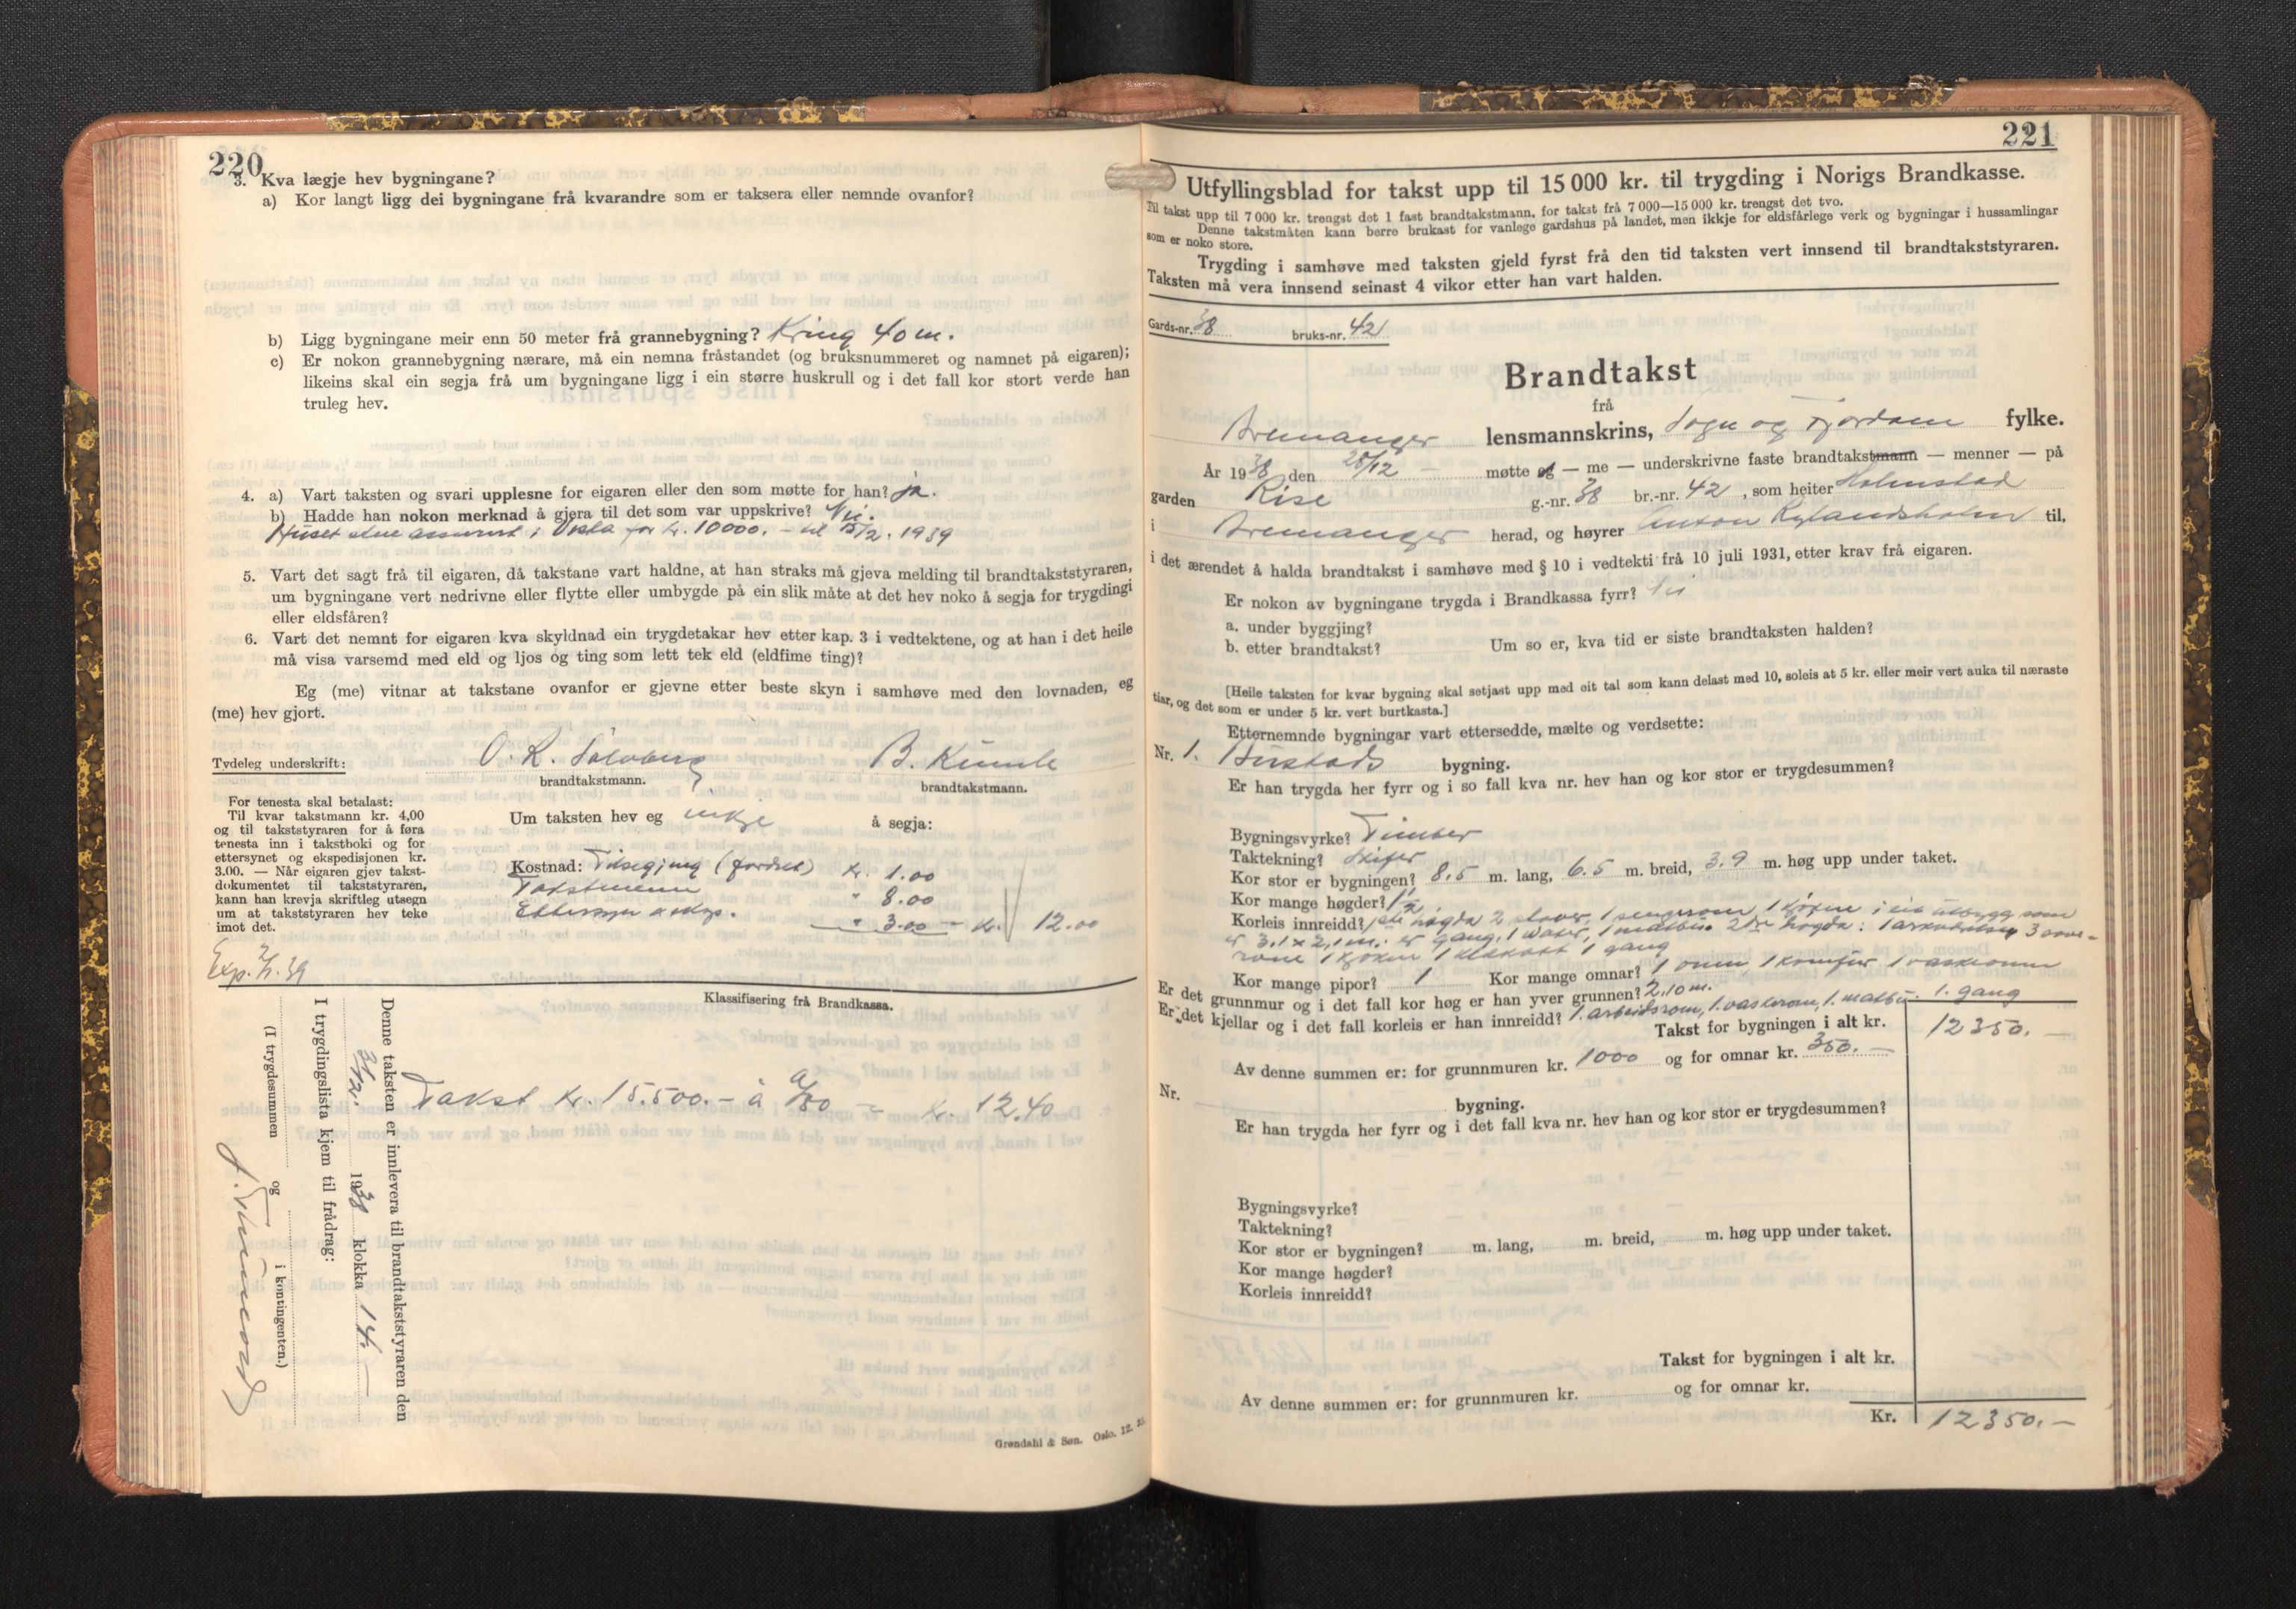 220
3. Kva lægje hev bygningane?
a) Kor langt ligg dei bygningane frå kvarandre som er taksera eller nemnde ovanfor?
b) Ligg bygningane meir enn 50 meter frå grannebygning? Kring 40 m.
c) Er nokon grannebygning nærare, må ein nemna fråstandet (og bruksnummeret og namnet på eigaren);
likeins skal ein segja frå um bygningane ligg i ein større huskrull og i det fall kor stort verde han
truleg hev.
4. a) Vart taksten og svari upplesne for eigaren eller den som møtte for han? ja.
b) Hadde han nokon merknad å gjera til det som var uppskrive? Nei.
Huset assurert i Vesta for kr. 10000.- til 15/2. 1939
5. Vart det sagt frå til eigaren, då takstane vart haldne, at han straks må gjeva melding til brandtakststyraren,
um bygningane vert nedrivne eller flytte eller umbygde på ein slik måte at det hev noko å segja for trygdingi
eller eldsfåren?
6. Vart det nemnt for eigaren kva skyldnad ein trygdetakar hev etter kap. 3 i vedtektene, og at han i det heile
må visa varsemd med eld og ljos og ting som lett tek eld (eldfime ting)?
Eg (me) vitnar at takstane ovanfor er gjevne etter beste skyn i samhøve med den lovnaden, eg
(me) hev gjort.
Tydeleg underskrift: O. R. Solvberg B. Kumle
brandtakstmann. brandtakstmann.
For tenesta skal betalast:
Til kvar takstmann kr. 4,00
og til takststyraren for å føra
tenesta inn i takstboki og for
ettersynet og ekspedisjonen kr.
3.00. — Når eigaren gjev takst-
dokumentet til takststyraren,
kann han krevja skriftleg utsegn
um at takststyraren hev teke
imot det.
Um taksten hev eg inkje å segja:
Kostnad: Tilsegjing (fordel) Kr. 1.00
Takstmenn " 8.00
Ettersyn o eksp. " 3.00 - Kr. 12.00
Exp. 2/1. 39
Klassifisering frå Brandkassa.
Takst kr. 15.500.- à /80 - kr. 12.40
Denne taksten er innlevera til brandtakststyraren den
31/12. 1938 klokka 14 —
I trygdingslista kjem til frådrag:
(I trygdesummen og i kontingenten.)
Grøndahl & Søn. Oslo. 12.
221
Utfyllingsblad for takst upp til 15 000 kr. til trygding i Norigs Brandkasse.
Til takst upp til 7 000 kr. trengst det 1 fast brandtakstmann, for takst frå 7 000—15 000 kr. trengst det tvo.
Denne takstmåten kann berre brukast for vanlege gardshus på landet, men ikkje for eldsfårlege verk og bygningar i hussamlingar
som er noko store.
Trygding i samhøve med taksten gjeld fyrst frå den tid taksten vert innsend til brandtakststyraren.
Taksten må vera innsend seinast 4 vikor etter han vart halden.
Gards-nr. 38 bruks-nr. 42
Brandtakst
frå
Bremanger lensmannskrins, Sogn og Fjordane fylke.
År 1938 den 28/12 - møtte eg — me — underskrivne faste brandtakstmann — menner — på
garden Rise g.-nr. 38 br.-nr. 42, som heiter Holmstad
i Bremanger herad, og høyrer Anton Rylandsholm til,
i det ærendet å halda brandtakst i samhøve med § 10 i vedtekti frå 10 juli 1931, etter krav frå eigaren.
Er nokon av bygningane trygda i Brandkassa fyrr? Nei
a. under byggjing?
b. etter brandtakst? Um so er, kva tid er siste brandtaksten halden?
[Heile taksten for kvar bygning skal setjast upp med eit tal som kann delast med 10, soleis at 5 kr. eller meir vert auka til næraste
tiar, og det som er under 5 kr. vert burtkasta.]
Etternemnde bygningar vart ettersedde, mælte og verdsette:
Nr. 1. Bustads bygning.
Er han trygda her fyrr og i so fall kva nr. hev han og kor stor er trygdesummen?
Bygningsvyrke? Timber
Taktekning? Skifer
Kor stor er bygningen? 8.5 m. lang, 6.5 m. breid, 3.9 m. høg upp under taket.
Kor mange høgder? 1½
Korleis innreidd? 1ste høgda 2 stover, 1 sengerom, 1 kjøken i eit utbygg som
er 3.1 x 2,1 m. er gang, 1 water, 1 matbu. 2dre høgda: 1 arkverelse 3 sove-
rom 1 kjøken 1 kleskott 1 gang
Kor mange pipor? 1 Kor mange omnar? 1 omn, 1 komfur 1 vaskeomn
Er det grunnmur og i det fall kor høg er han yver grunnen? 2,10 m.
Er det kjellar og i det fall korleis er han innreidd? 1. arbeidsrom, 1. vaskerom, 1. matbu. 1. gang
Takst for bygningen i alt kr. 12350. —
Av denne summen er: for grunnmuren kr. 1000 og for omnar kr. 350. —
Nr. bygning.
Er han trygda her fyrr og i det fall kva nr. hev han og kor stor er trygdesummen?
Bygningsvyrke?
Taktekning?
Kor stor er bygningen? m. lang, m. breid, m. høg upp under taket.
Kor mange høgder?
Korleis innreidd?
Takst for bygningen i alt kr.
Av denne summen er: for grunnmuren kr. og for omnar kr.
Kr. 12350. —